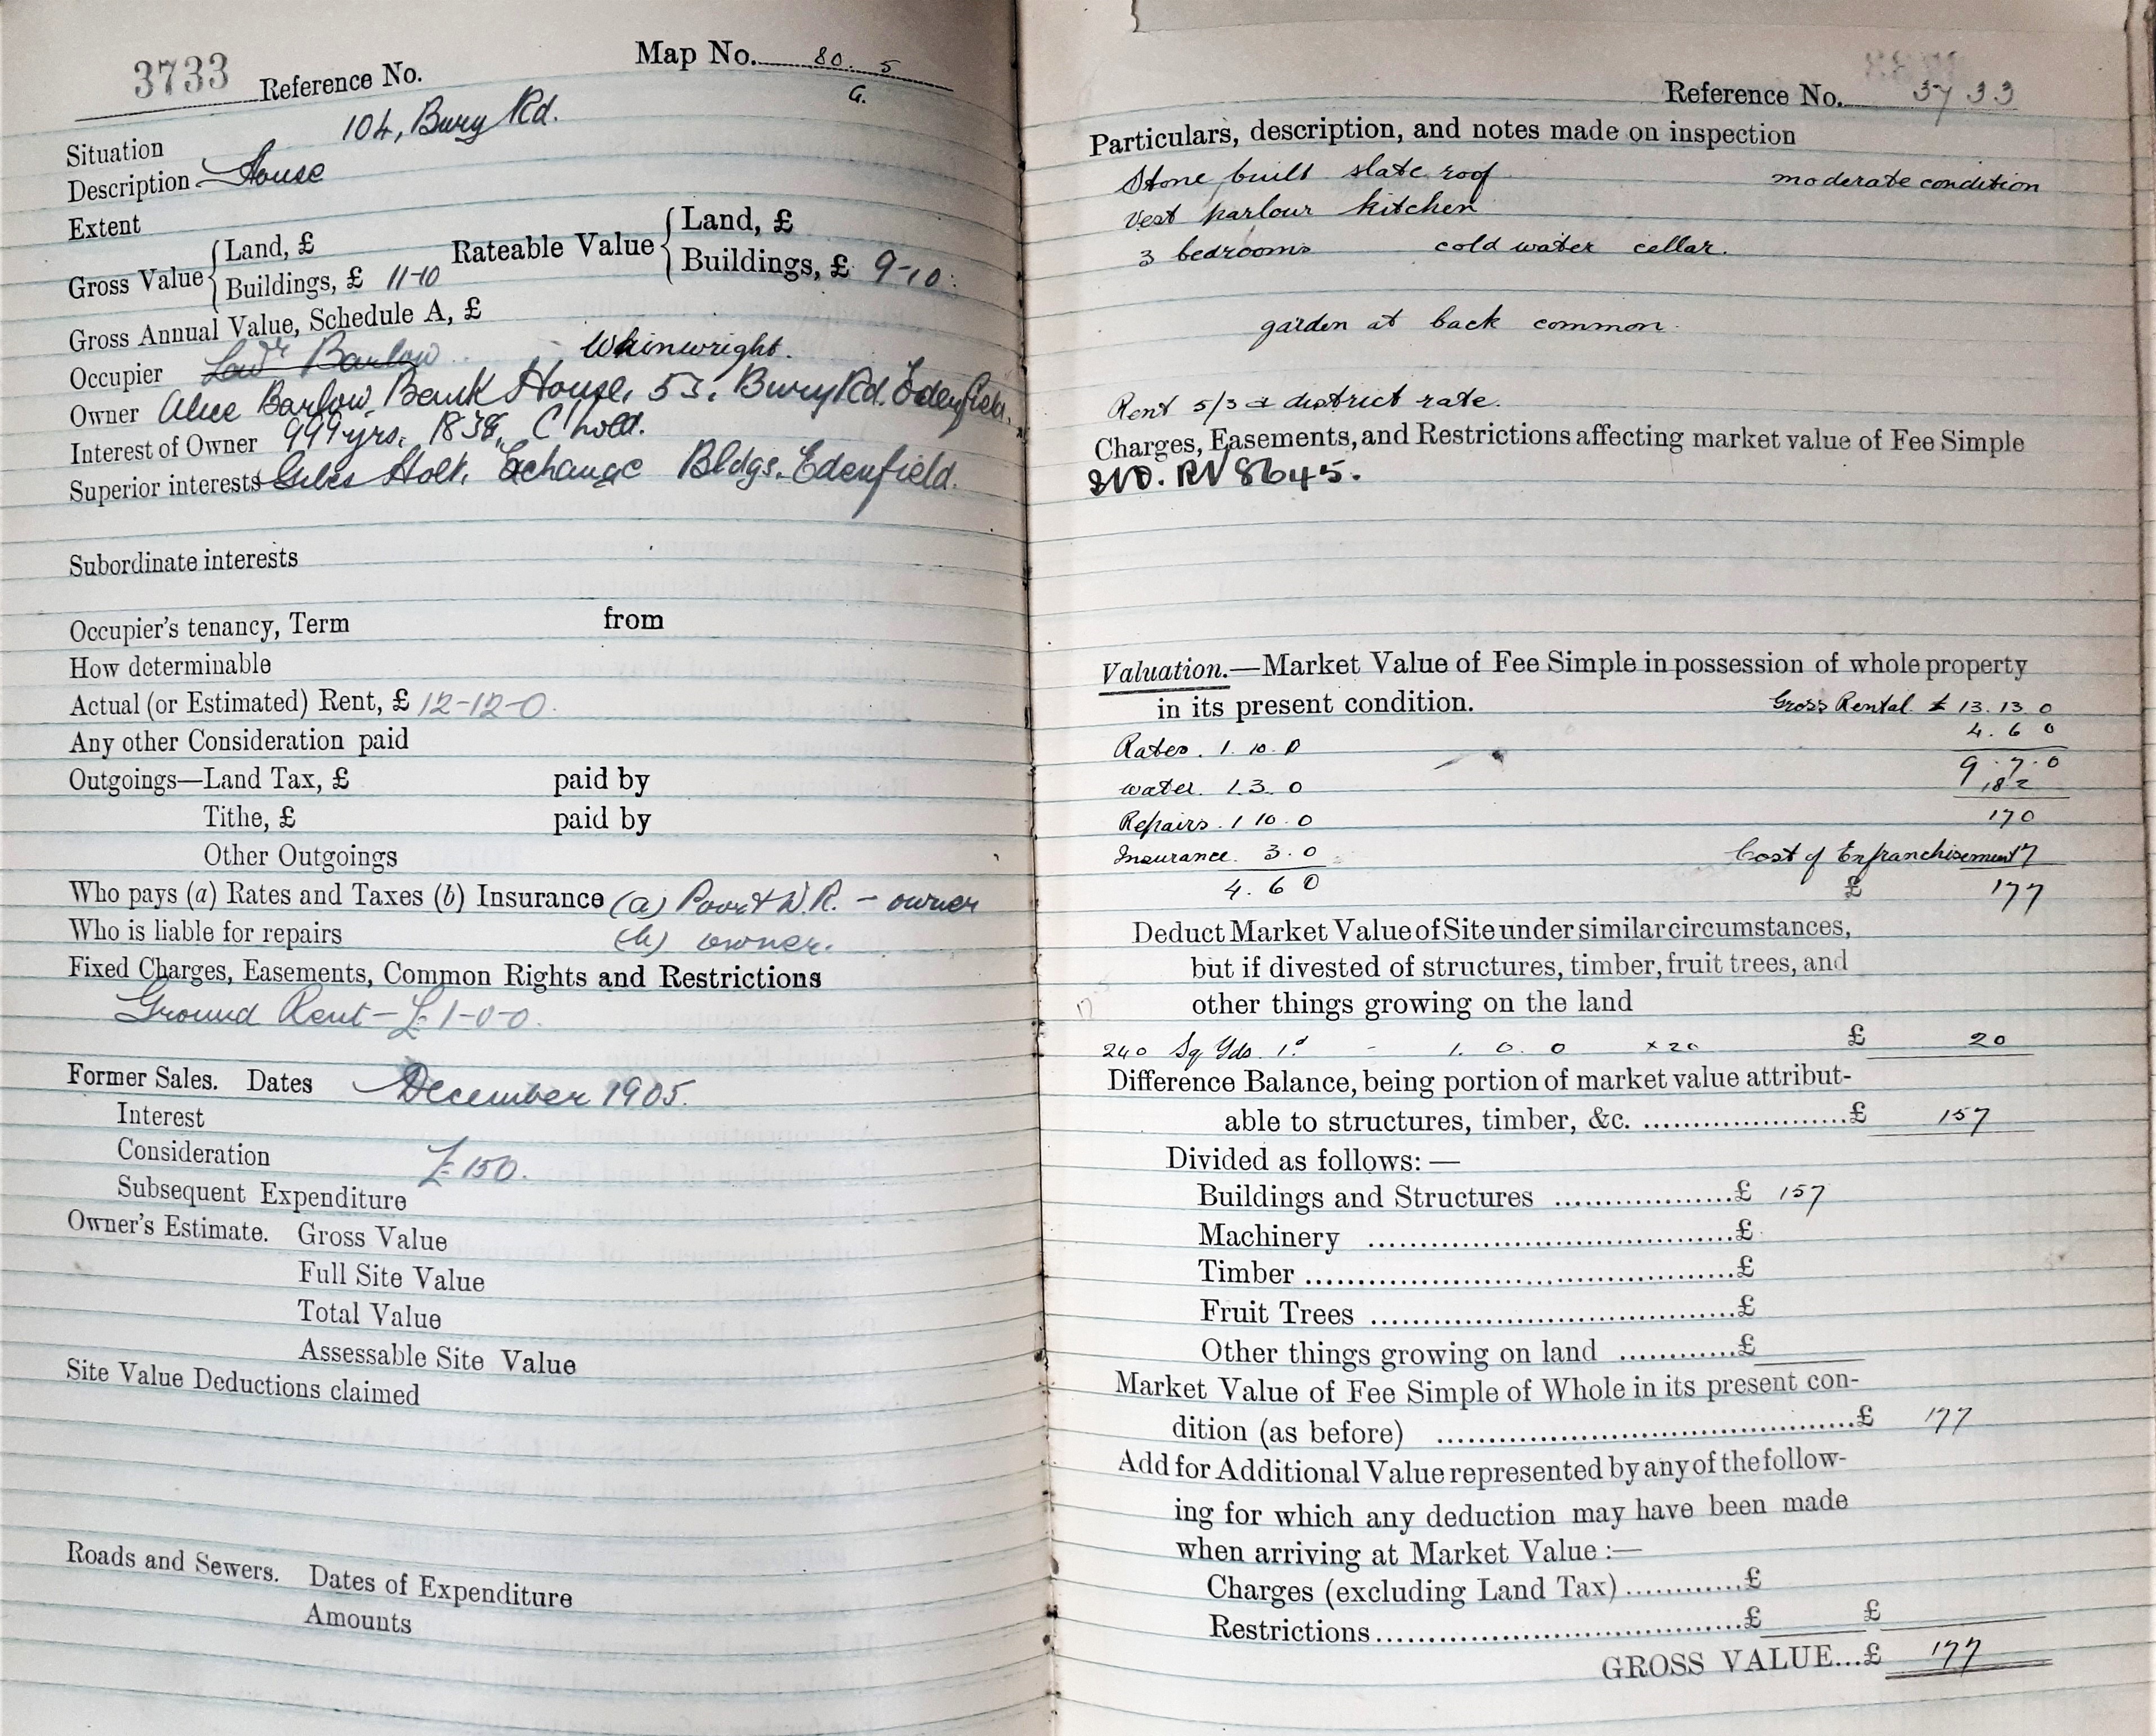 3733 Reference No. Map No. 80. 5
G.
Situation 104, Bury Rd.
Description House
Extent
Gross Value { Land, £
Buildings, £ 11-10
Rateable Value { Land, £
Buildings, £ 9-10.
Gross Annual Value, Schedule A, £
Occupier Barlow Whinwright.
Owner Alice Barlow, Bank House, 53, Bury Rd. Edenfield.
Interest of Owner 999 yrs. C'hold.
Superior interests Giles Holt, Exchange Bldgs. Edenfield.
Subordinate interests
Occupier's tenancy, Term from
How determinable
Actual (or Estimated) Rent, £ 12-12-0.
Any other Consideration paid
Outgoings—Land Tax, £ paid by
Tithe, £ paid by
Other Outgoings
Who pays (a) Rates and Taxes (b) Insurance (a) Poor & W.R. - owner
Who is liable for repairs (b) owner.
Fixed Charges, Easements, Common Rights and Restrictions
Ground Rent - £1-0-0.
Former Sales. Dates December 1905.
Interest
Consideration £150.
Subsequent Expenditure
Owner's Estimate. Gross Value
Full Site Value
Total Value
Assessable Site Value
Site Value Deductions claimed
Roads and Sewers. Dates of Expenditure
Amounts
Reference No. 3733
Particulars, description, and notes made on inspection
Stone built slate roof moderate condition
Vest parlour kitchen
3 bedrooms cold water cellar.
garden at back common.
Rent 5/3 & district rate.
Charges, Easements, and Restrictions affecting market value of Fee Simple
RV 8645.
Valuation.—Market Value of Fee Simple in possession of whole property
in its present condition. Gross Rental £ 13. 13 0
4. 6 0
Rates. 1. 10. 0
9. 7. 0
water. 1. 3. 0 182
Repairs. 1 10. 0 170
Insurance. 3. 0 Cost of Enfranchisement 7
4. 6 0 £ 177
Deduct Market Value of Site under similar circumstances,
but if divested of structures, timber, fruit trees, and
other things growing on the land
240 Sq Yds. 1d - 1. 0. 0 x 20 £ 20
Difference Balance, being portion of market value attribut-
able to structures, timber, &c. ......................£ 157
Divided as follows: —
Buildings and Structures ...................£ 157
Machinery .......................................£
Timber .............................................£
Fruit Trees ......................................£
Other things growing on land ............£
Market Value of Fee Simple of Whole in its present con-
dition (as before) ............................................£ 177
Add for Additional Value represented by any of the follow-
ing for which any deduction may have been made
when arriving at Market Value :—
Charges (excluding Land Tax)............£
Restrictions.......................................£ £
GROSS VALUE...£ 177